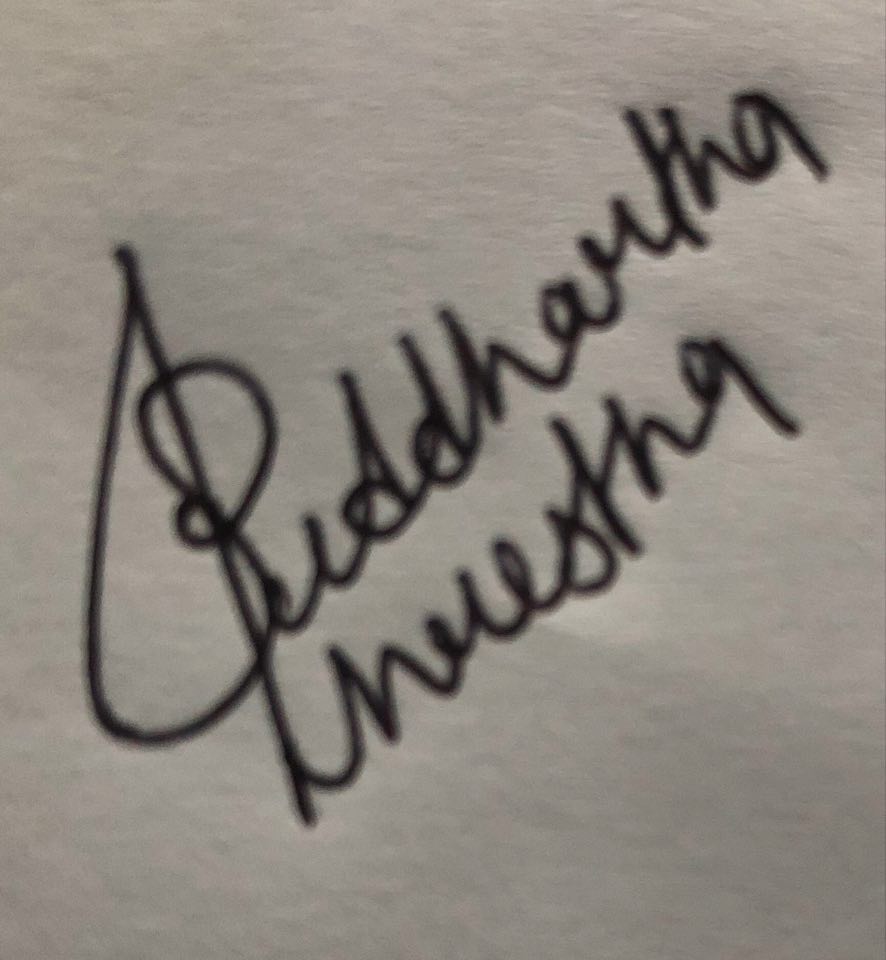 Siddhartha
Shrestha